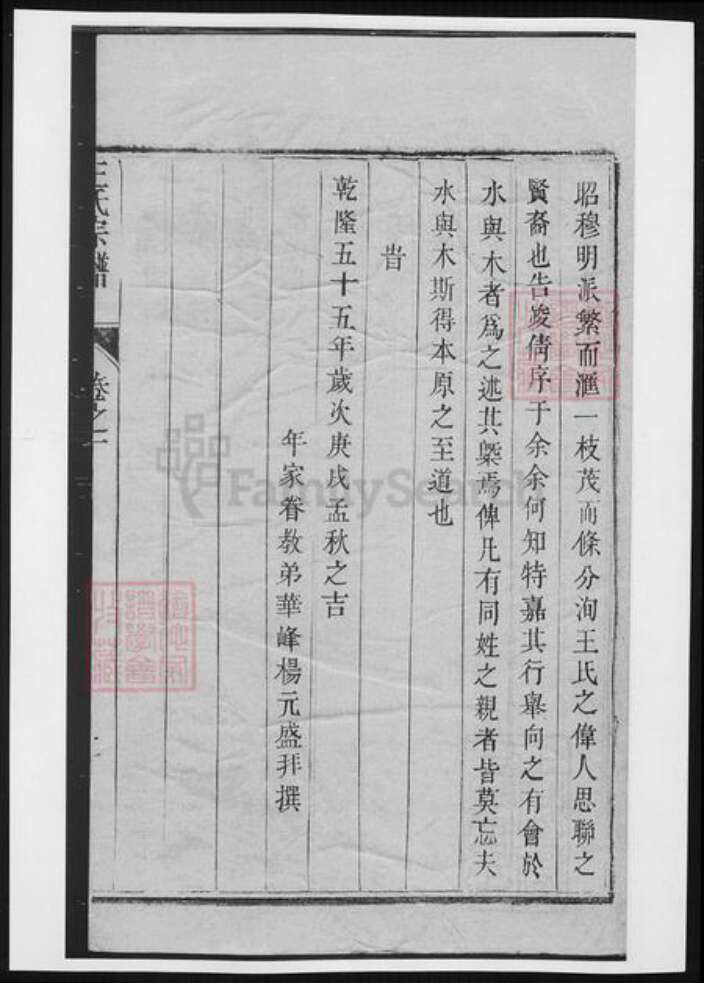 昭穆明派繁而滙一枝茂而條分洵王氏之偉人思聯之
賢裔也告竣倩序于余余何知特嘉其行舉向之有會於
水與木者爲之述其槩焉俾凡有同姓之親者皆莫忘夫
水與木斯得本原之至道也
旹
乾隆五十五年歲次庚戌孟秋之吉
年家眷教弟華峰楊元盛拜撰
王氏宗譜
卷之一
FamilySearch